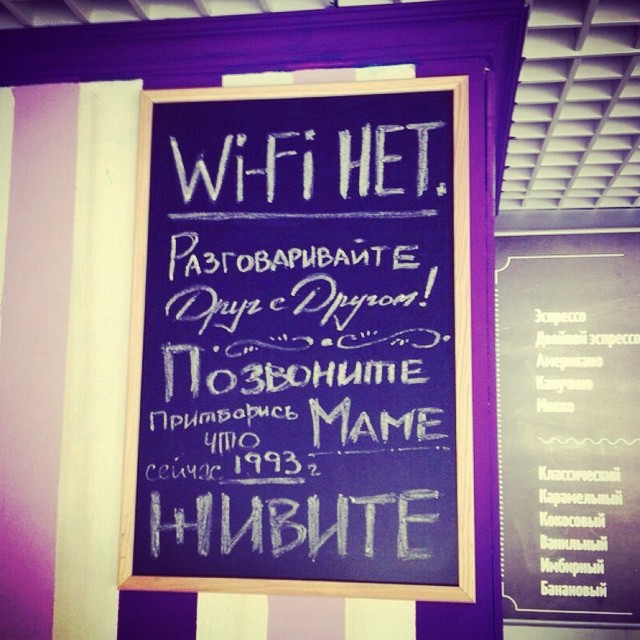 Wi-Fi НЕТ.
Разговаривайте
Друг с Другом!
Позвоните
Маме
Притварись
что
сейчас 1993 г
Живите
Эспрессо
Двойной эспрессо
Американо
Капучино
Мокко
Классический
Карамельный
Кокосовый
Ванильный
Имбирный
Банановый